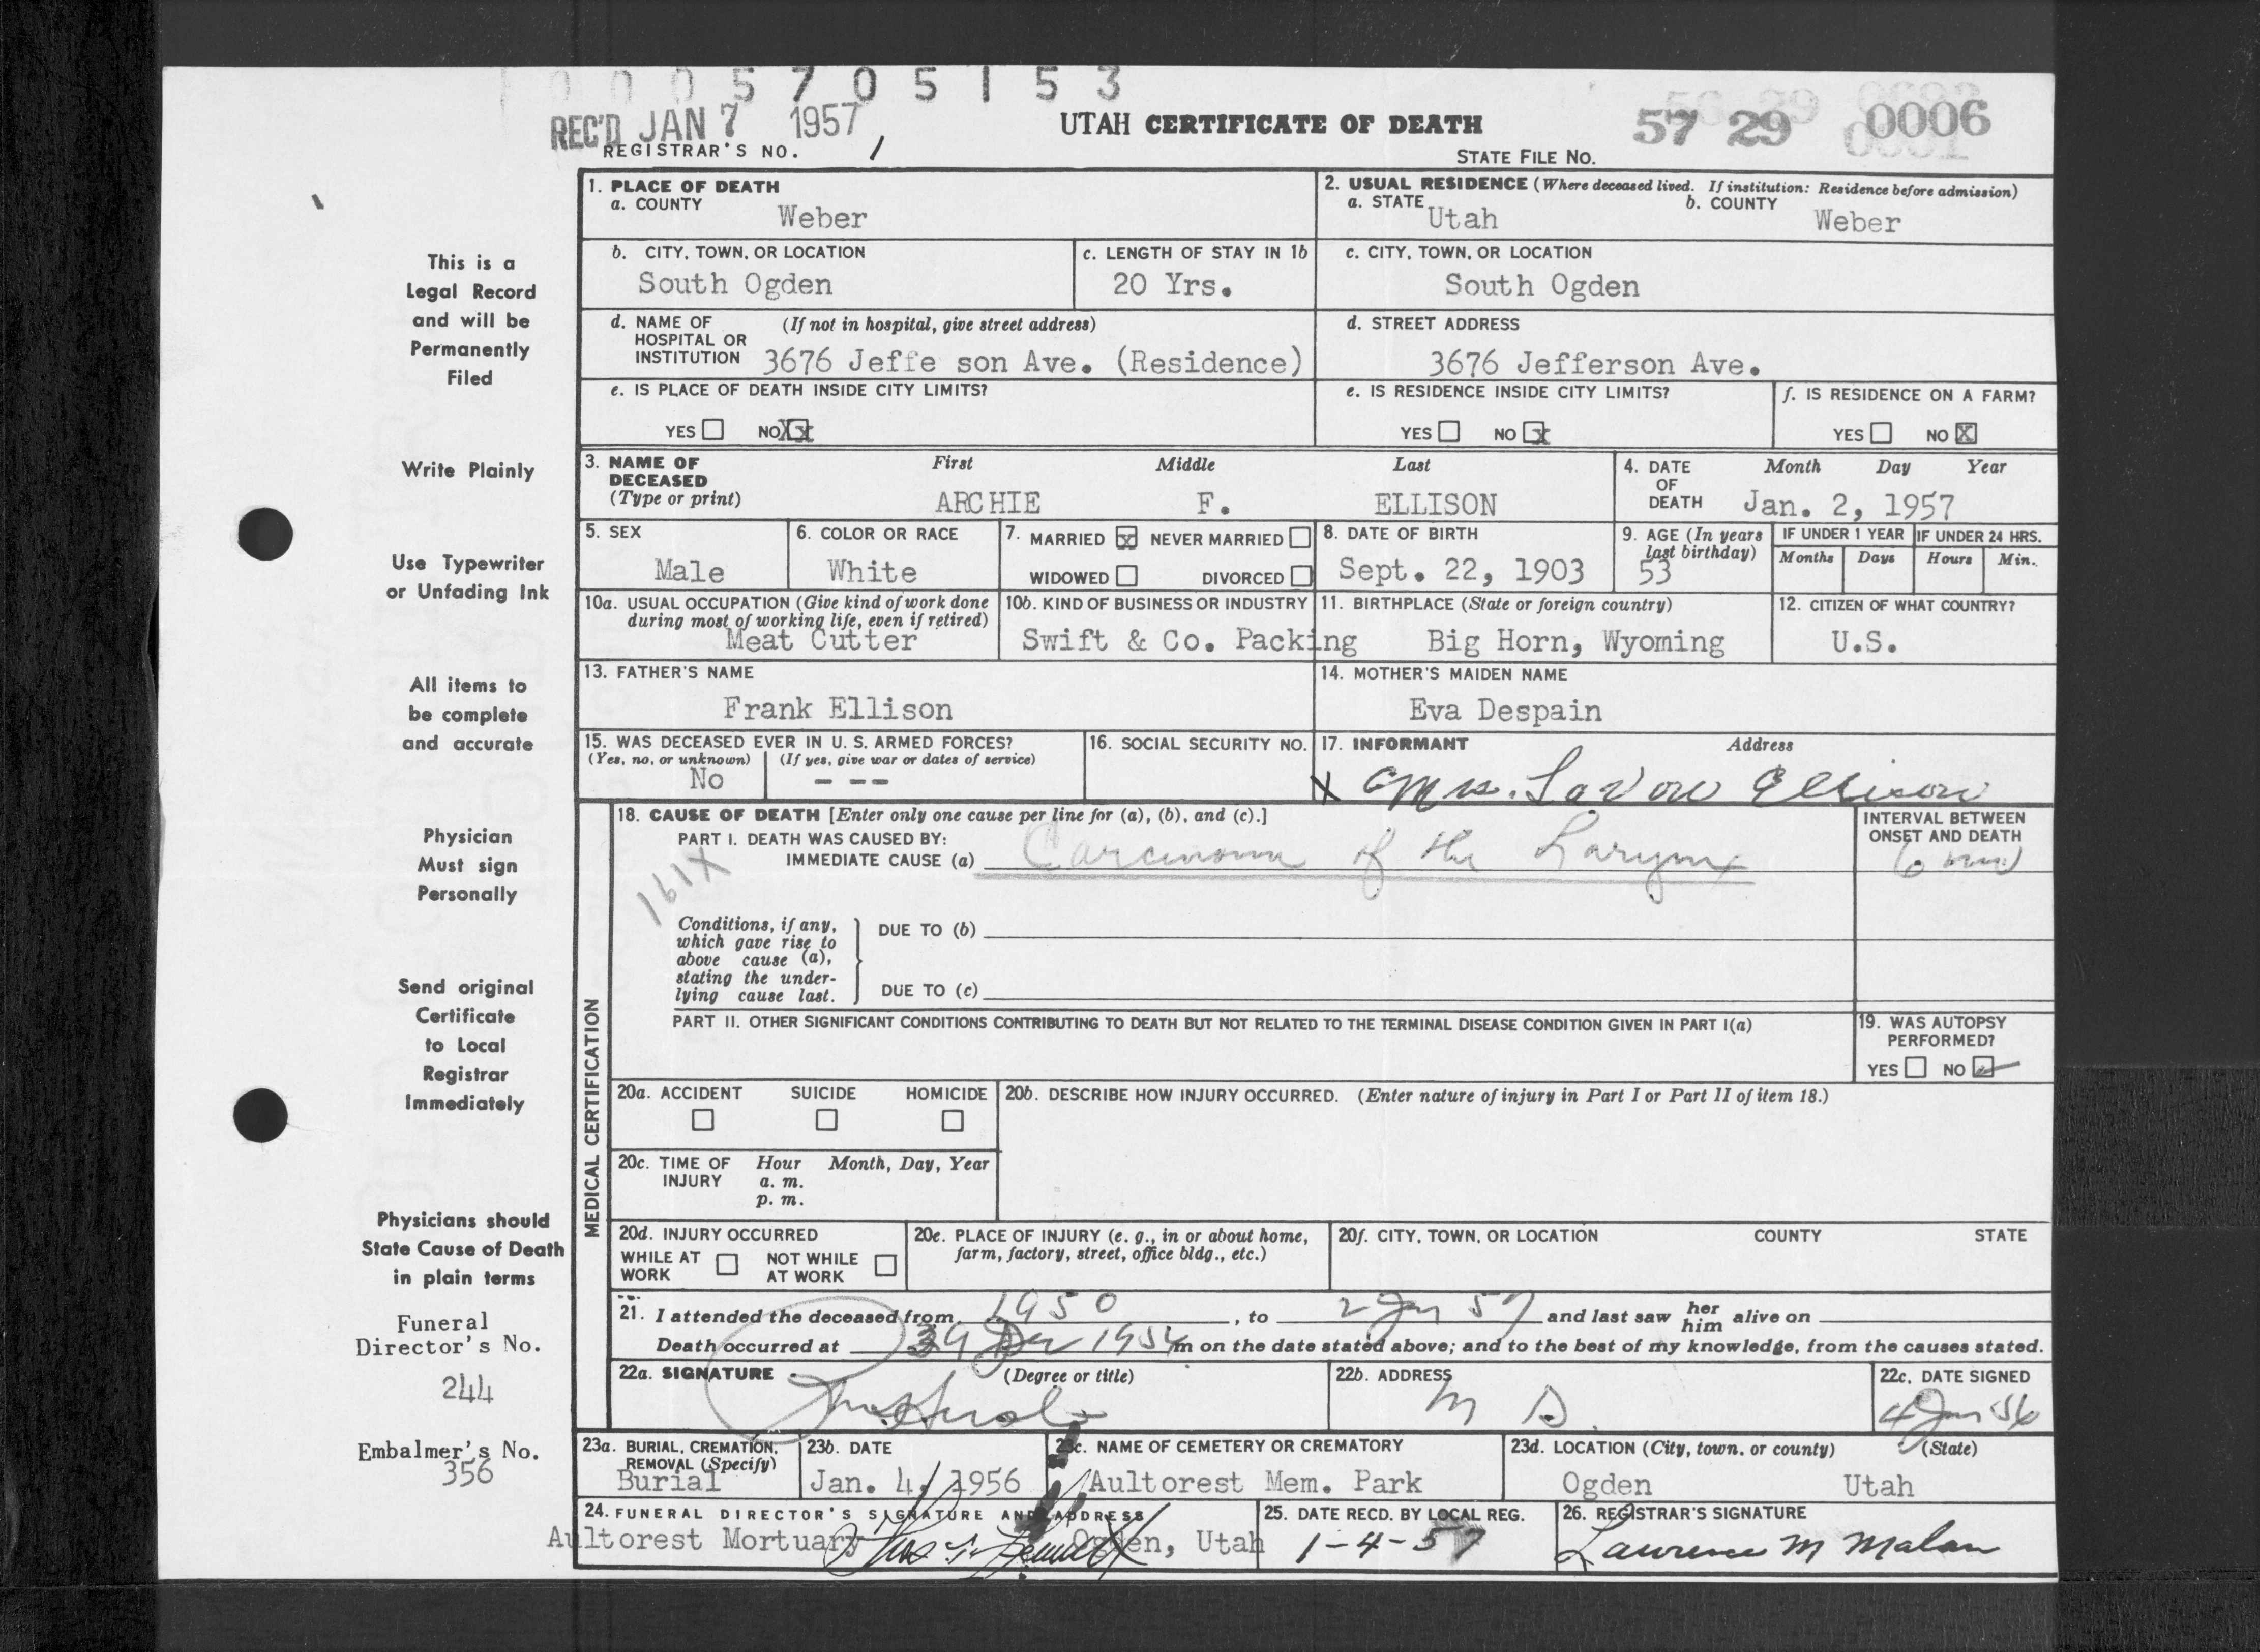 0005705153
REC'D JAN 7 1957
UTAH CERTIFICATE OF DEATH
57 29 0006
REGISTRAR'S NO. 1
STATE FILE NO.
1. PLACE OF DEATH
a. COUNTY
Weber
2. USUAL RESIDENCE (Where deceased lived. If institution: Residence before admission)
a. STATE
Utah
b. COUNTY
Weber
b. CITY, TOWN, OR LOCATION
South Ogden
c. LENGTH OF STAY IN 1b
20 Yrs.
c. CITY, TOWN, OR LOCATION
South Ogden
d. NAME OF HOSPITAL OR INSTITUTION (If not in hospital, give street address)
3676 Jeffe son Ave. (Residence)
d. STREET ADDRESS
3676 Jefferson Ave.
e. IS PLACE OF DEATH INSIDE CITY LIMITS?
YES NO XX
e. IS RESIDENCE INSIDE CITY LIMITS?
YES NO X
f. IS RESIDENCE ON A FARM?
YES NO X
3. NAME OF DECEASED (Type or print)
First Middle Last
ARCHIE F. ELLISON
4. DATE OF DEATH
Month Day Year
Jan. 2, 1957
5. SEX
Male
6. COLOR OR RACE
White
7. MARRIED X NEVER MARRIED
WIDOWED DIVORCED
8. DATE OF BIRTH
Sept. 22, 1903
9. AGE (In years last birthday)
53
IF UNDER 1 YEAR
Months Days
IF UNDER 24 HRS.
Hours Min.
10a. USUAL OCCUPATION (Give kind of work done during most of working life, even if retired)
Meat Cutter
10b. KIND OF BUSINESS OR INDUSTRY
Swift & Co. Packing
11. BIRTHPLACE (State or foreign country)
Big Horn, Wyoming
12. CITIZEN OF WHAT COUNTRY?
U.S.
13. FATHER'S NAME
Frank Ellison
14. MOTHER'S MAIDEN NAME
Eva Despain
15. WAS DECEASED EVER IN U. S. ARMED FORCES?
(Yes, no, or unknown) (If yes, give war or dates of service)
No - - -
16. SOCIAL SECURITY NO.
17. INFORMANT Address
X Mrs. LaVon Ellison
MEDICAL CERTIFICATION
18. CAUSE OF DEATH [Enter only one cause per line for (a), (b), and (c).]
PART I. DEATH WAS CAUSED BY:
IMMEDIATE CAUSE (a) Carcinoma of the Larynx
161X
INTERVAL BETWEEN ONSET AND DEATH
Conditions, if any, which gave rise to above cause (a), stating the underlying cause last.
DUE TO (b)
DUE TO (c)
PART II. OTHER SIGNIFICANT CONDITIONS CONTRIBUTING TO DEATH BUT NOT RELATED TO THE TERMINAL DISEASE CONDITION GIVEN IN PART I(a)
19. WAS AUTOPSY PERFORMED?
YES NO
20a. ACCIDENT SUICIDE HOMICIDE
20b. DESCRIBE HOW INJURY OCCURRED. (Enter nature of injury in Part I or Part II of item 18.)
20c. TIME OF INJURY
Hour Month, Day, Year
a. m.
p. m.
20d. INJURY OCCURRED
WHILE AT WORK NOT WHILE AT WORK
20e. PLACE OF INJURY (e. g., in or about home, farm, factory, street, office bldg., etc.)
20f. CITY, TOWN, OR LOCATION COUNTY STATE
21. I attended the deceased from 1950, to 2 Jan 57 and last saw her him alive on
Death occurred at m on the date stated above; and to the best of my knowledge, from the causes stated.
22a. SIGNATURE (Degree or title)
22b. ADDRESS
M D.
22c. DATE SIGNED
4 Jan 56
23a. BURIAL, CREMATION, REMOVAL (Specify)
Burial
23b. DATE
Jan. 4, 1956
23c. NAME OF CEMETERY OR CREMATORY
Aultorest Mem. Park
23d. LOCATION (City, town, or county) (State)
Ogden Utah
24. FUNERAL DIRECTOR'S SIGNATURE AND ADDRESS
Aultorest Mortuary Ogden, Utah
25. DATE RECD. BY LOCAL REG.
1-4-57
26. REGISTRAR'S SIGNATURE
Lawrence M Malan
This is a
Legal Record
and will be
Permanently
Filed
Write Plainly
Use Typewriter
or Unfading Ink
All items to
be complete
and accurate
Physician
Must sign
Personally
Send original
Certificate
to Local
Registrar
Immediately
Physicians should
State Cause of Death
in plain terms
Funeral
Director's No.
244
Embalmer's No.
356